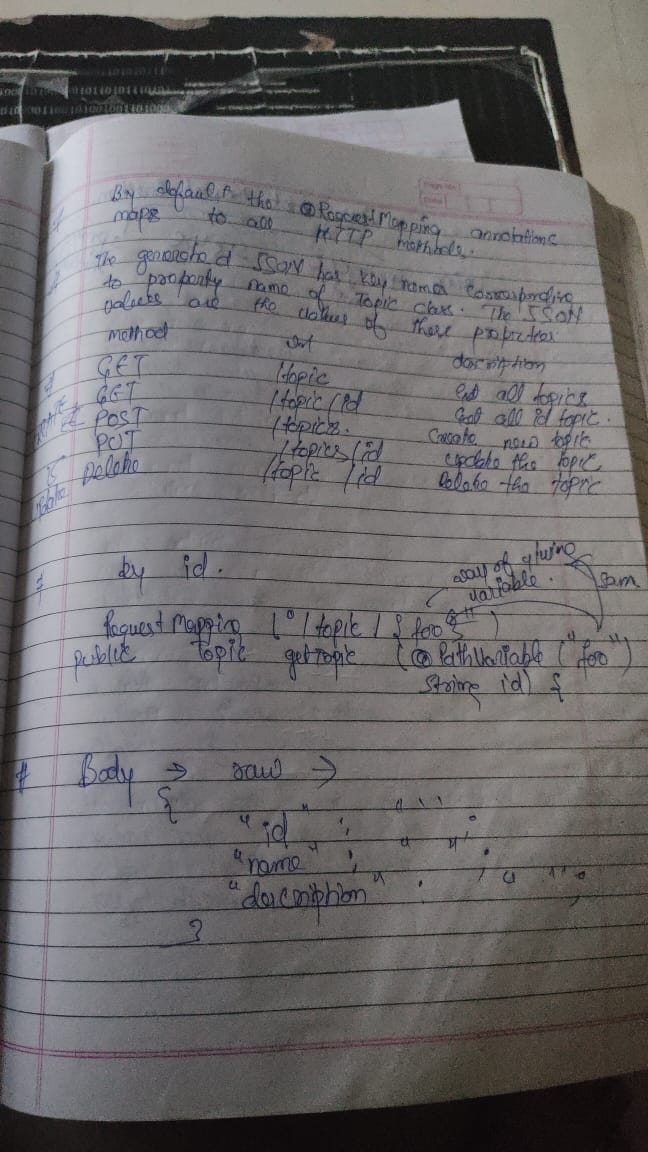 # By default the @RequestMapping annotations
maps to all HTTP methods.
# The generated JSON has key names corresponding
to property name of Topic class. The JSON
values are the values of these properties
method url description
GET /topic Get all topics
GET /topic/id Get all id topic.
POST /topics. Create new topic
PUT /topics/id update the topic
Delete /topic/id Delete the topic
# by id.
way of
variable. Sam
RequestMapping ("/topic/{foo}")
public Topic getTopic (@PathVariable ("foo")
String id) {
# Body → raw →
{
"id" : " " ;
"name" : " " ;
"description" : " " ;
}